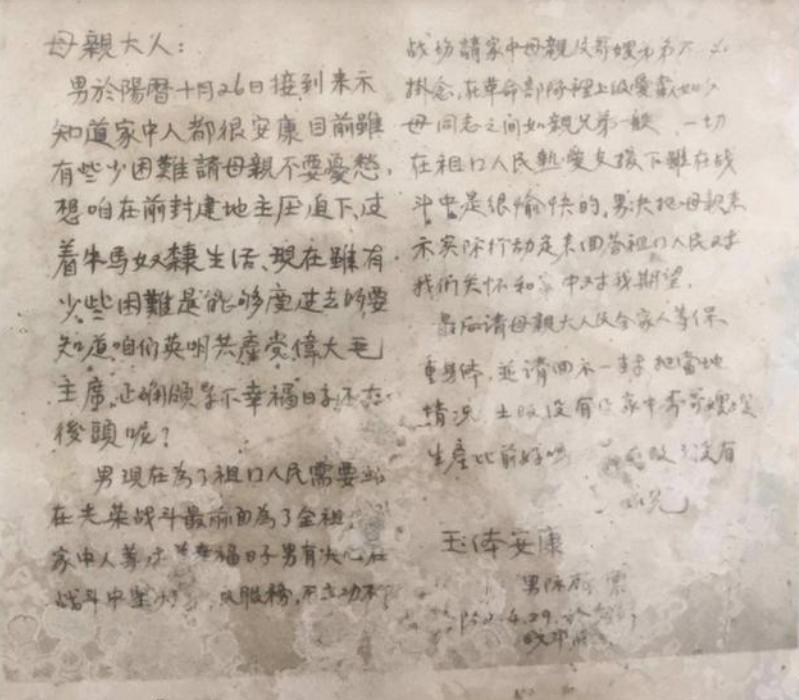 母親大人：
男於陽曆十月26日接到来示
知道家中人都很安康目前雖
有些少困難請母親不要憂愁，
想咱在前封建地主压迫下，过
着牛馬奴隸生活、現在雖有
少些困難是能够度过去的要
知道咱们英明共產党偉大毛
主席，正确領导下幸福日子还在
後頭呢？
男現在為了祖囗人民需要站
在光荣战斗最前面為了全祖
家中人等过幸福日子男有决心在
战斗中
服務，不立功不
战场請家中母親及哥嫂弟弟不必
掛念，在革命部隊裡上级愛戴如父
母同志之间如親兄弟一般 一切
在祖囗人民熱愛支援下雖在战
斗中是很愉快的，男决把母親来
示实际行动是来回答祖囗人民对
我们关怀和家中对我期望，
最后請母親大人及全家人等保
重身体，並請回示一封把當地
情况 土改没有 家中哥哥嫂嫂
生產比前好吧 改了没有
玉体安康
男
4.29